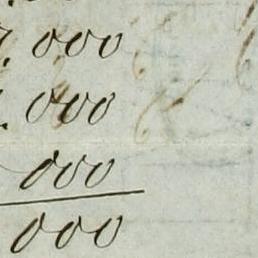 000
000
000
000